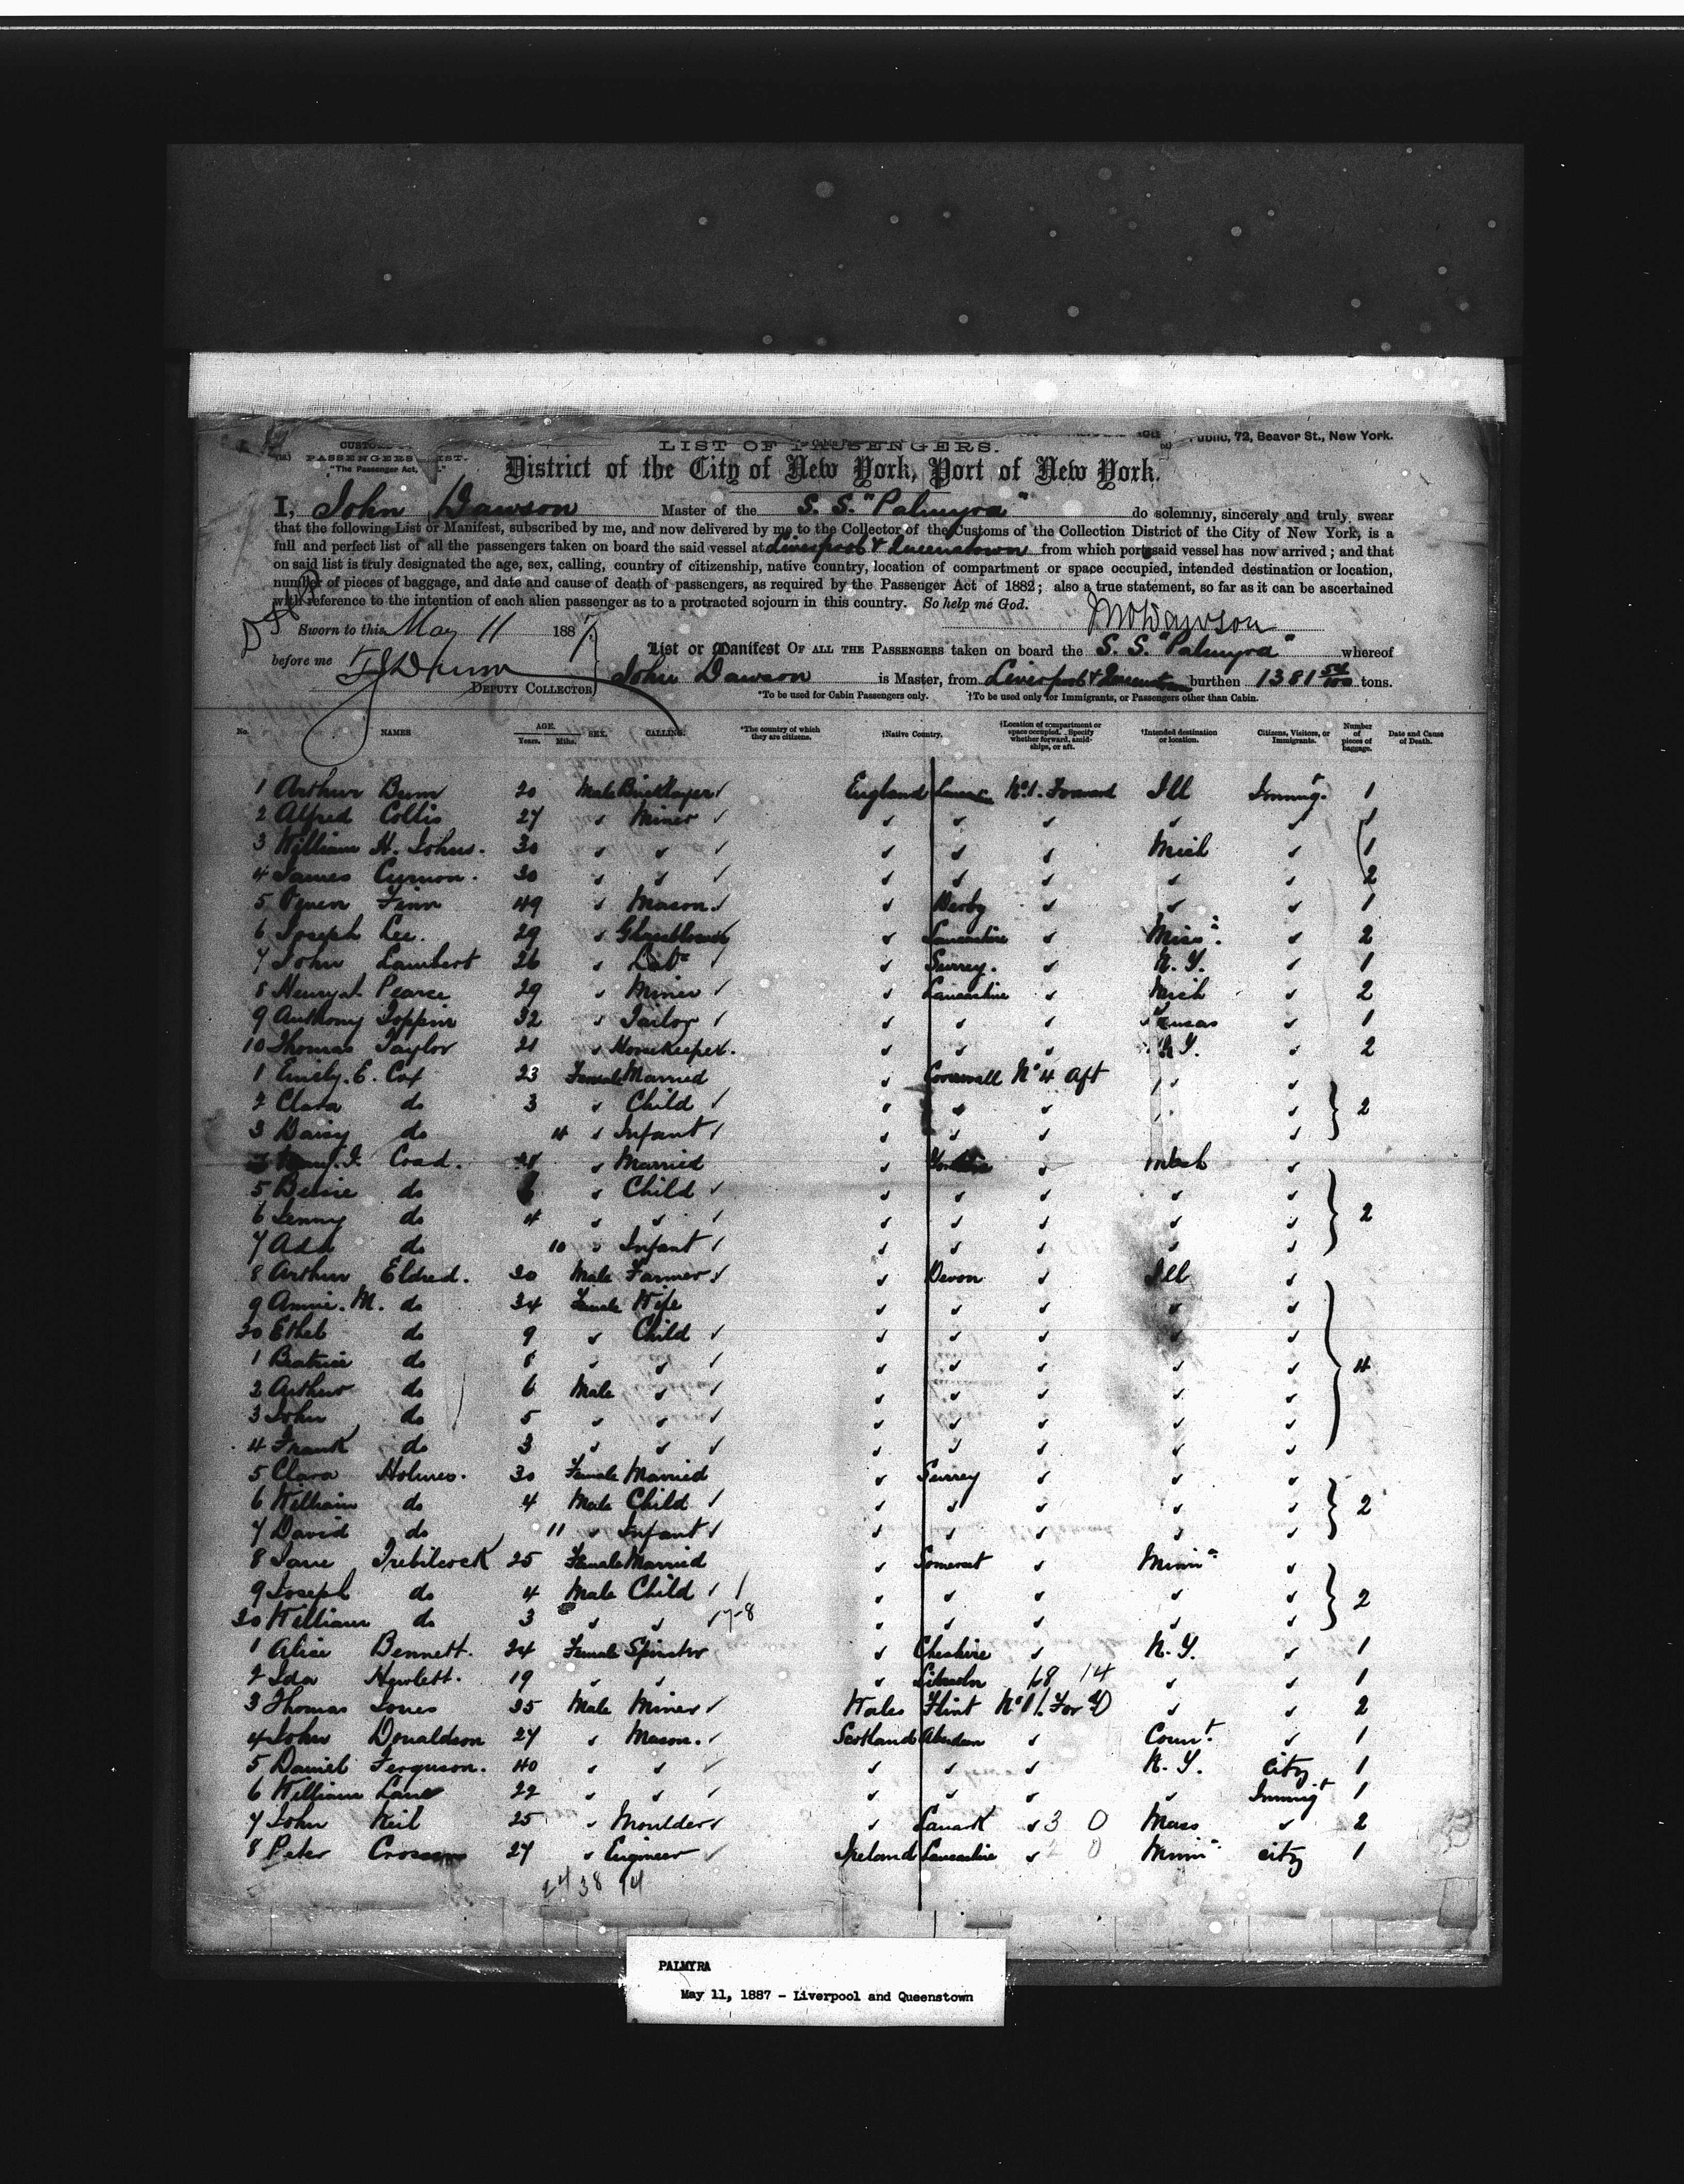 CUSTO
PASSENGERS IST.
"The Passenger Act,
LIST OF PASSENGERS.
Public, 72, Beaver St., New York.
District of the City of New York, Port of New York.
I, John Dawson Master of the S. S. "Palmyra" do solemnly, sincerely and truly swear
that the following List or Manifest, subscribed by me, and now delivered by me to the Collector of the Customs of the Collection District of the City of New York, is a
full and perfect list of all the passengers taken on board the said vessel at Liverpool & Queenstown from which port said vessel has now arrived; and that
on said list is truly designated the age, sex, calling, country of citizenship, native country, location of compartment or space occupied, intended destination or location,
number of pieces of baggage, and date and cause of death of passengers, as required by the Passenger Act of 1882; also a true statement, so far as it can be ascertained
with reference to the intention of each alien passenger as to a protracted sojourn in this country. So help me God.
Jno Dawson
Sworn to this May 11 1887
before me
DEPUTY COLLECTOR
List or Manifest OF ALL THE PASSENGERS taken on board the S. S. "Palmyra" whereof
John Dawson is Master, from Liverpool & Queenstown burthen 1381 54/100 tons.
*To be used for Cabin Passengers only. †To be used only for Immigrants, or Passengers other than Cabin.
No. NAMES AGE. Years. Mths. SEX. CALLING. *The country of which they are citizens. †Native Country. †Location of compartment or space occupied. Specify whether forward, amidships, or aft. †Intended destination or location. Citizens, Visitors, or Immigrants. Number of pieces of baggage. Date and Cause of Death.
1 Arthur 20 Male Bricklayer England No 1. Forward Ill Immig. 1
2 Alfred Collis 27 Miner 1
3 William H. Johns. 30 Mich 1
4 James 30 2
5 Finn 49 Mason. Derby 1
6 Joseph Lee. 29 Glassblower Lancashire 2
7 John Lambert 26 Lab Surrey. N. Y. 1
8 Henry J. Pearce 29 Miner Lancashire Mich 2
9 Anthony 32 Tailor Kansas 1
10 Thomas Taylor 21 N.Y. 2
1 Emily. E. Cox 23 Female Married Cornwall No 4 Aft
2 Clara do 3 Child 2
3 Daisy do 4 Infant
Coad. Married Mich
5 Bessie do Child
6 Jenny do 4 2
7 Ada do 10 Infant
8 Arthur Eldred. 30 Male Farmer Devon Ill
9 Annie. M. do 34 Female Wife
20 Ethel do 9 Child
1 Beatrice do 8 4
2 Arthur do 6 Male
3 John do 5
4 Frank do 3
5 Clara Holmes. 30 Female Married Surrey
6 William do 4 Male Child 2
7 David do 11 Infant
8 Jane Trebilcock 25 Female Married Somerset Minn
9 Joseph do 4 Male Child 2
30 William do 3 7-8
1 Alice Bennett. 24 Female Spinster Cheshire N. Y. 1
2 Ida Hewlett. 19 Lincoln 68 14 1
3 Thomas Jones 35 Male Miner Wales Flint No 1 For'd 2
4 John Donaldson 27 Mason. Scotland Aberdeen Conn't. 1
5 Daniel Ferguson. 40 N. Y. City 1
6 William Lane 22 Immigt 1
7 John Neil 25 Moulder Lanark 3 0 Mass 2
8 Peter 27 Engineer Ireland Lancashire 0 Minn City 1
24 38 14
PALMYRA
May 11, 1887 - Liverpool and Queenstown